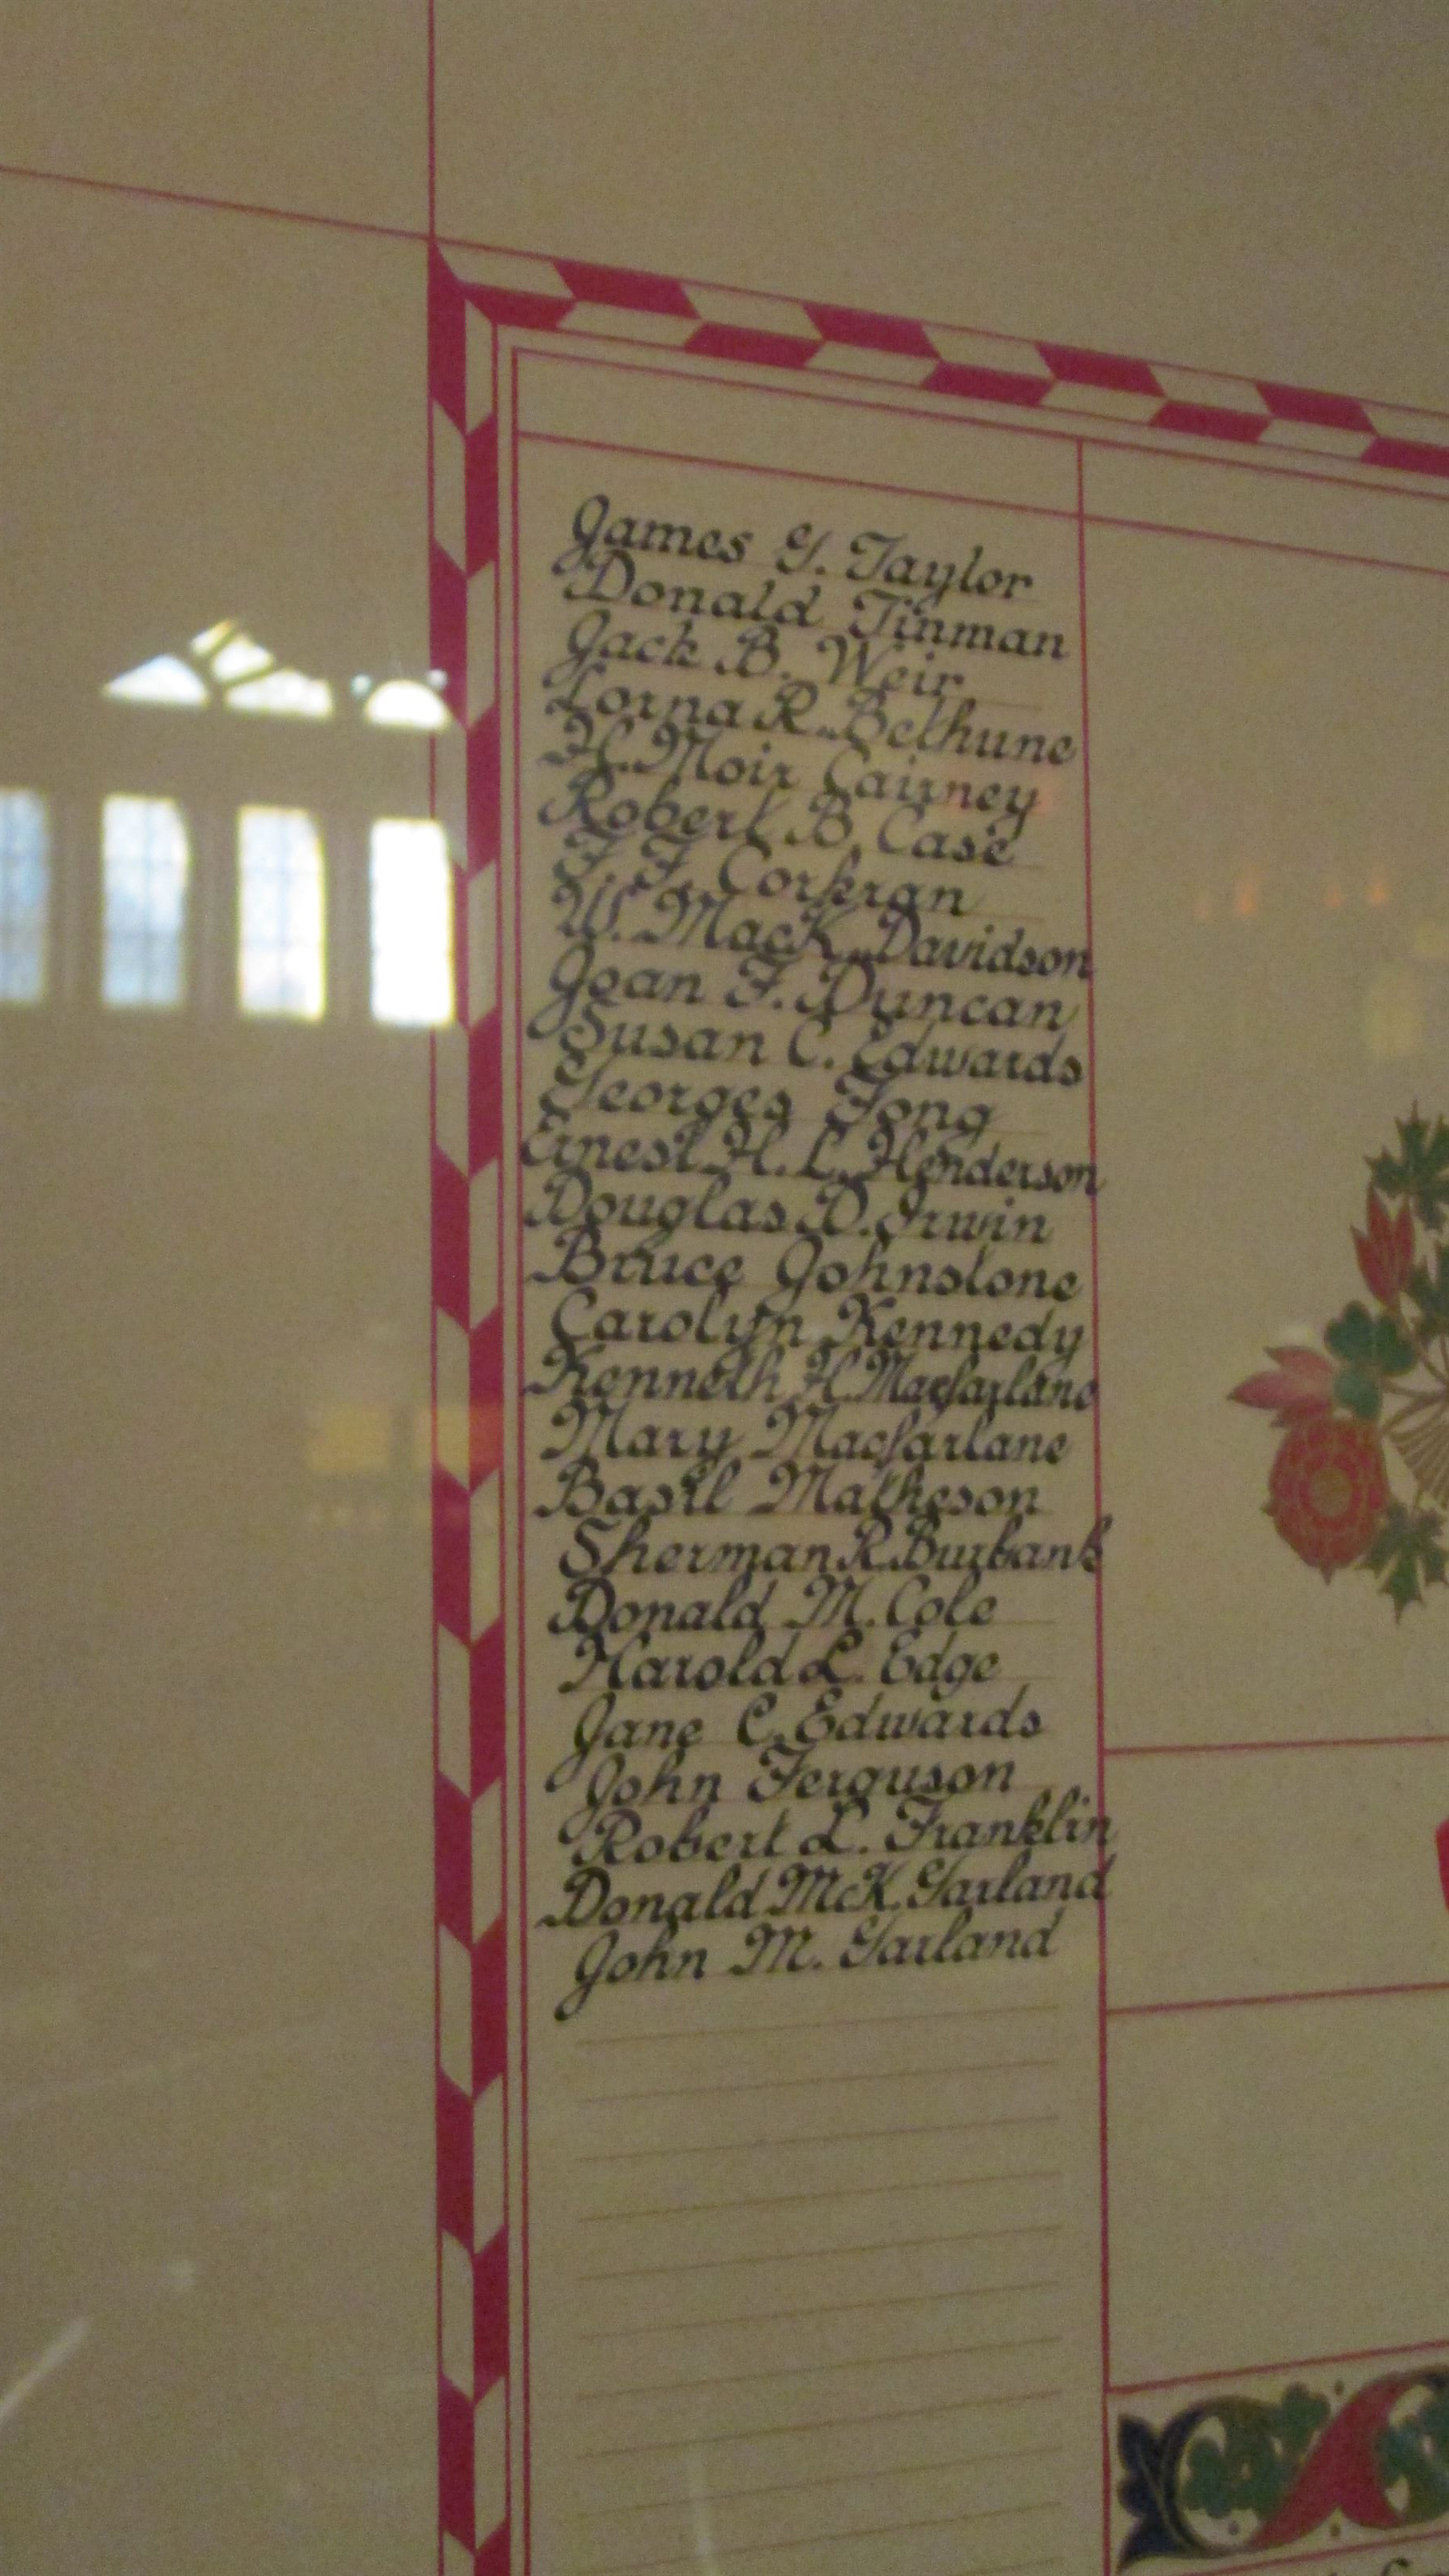 James G. Taylor
Donald Tinman
Jack B. Weir
Lorna R. Bethune
H. Moir Cairney
Robert B. Case
F. F. Corkran
W. MacK. Davidson
Joan F. Duncan
Susan C. Edwards
Georges Fong
Ernest H. L. Henderson
Douglas D. Irwin
Bruce Johnstone
Carolyn Kennedy
Kenneth H. Macfarlane
Mary Macfarlane
Basil Matheson
Sherman R. Burbank
Donald M. Cole
Harold L. Edge
Jane C. Edwards
John Ferguson
Robert L. Franklin
Donald McK. Garland
John M. Garland